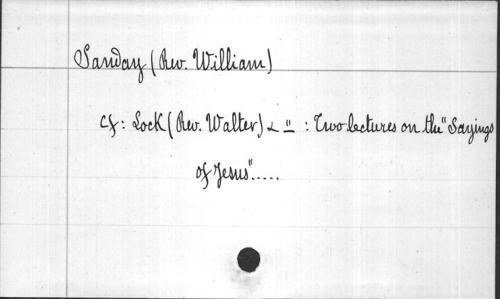 Sanday (Rev. William)
cf: Lock (Rev. Walter) & " : Two lectures on the "Sayings
of Jesus".....